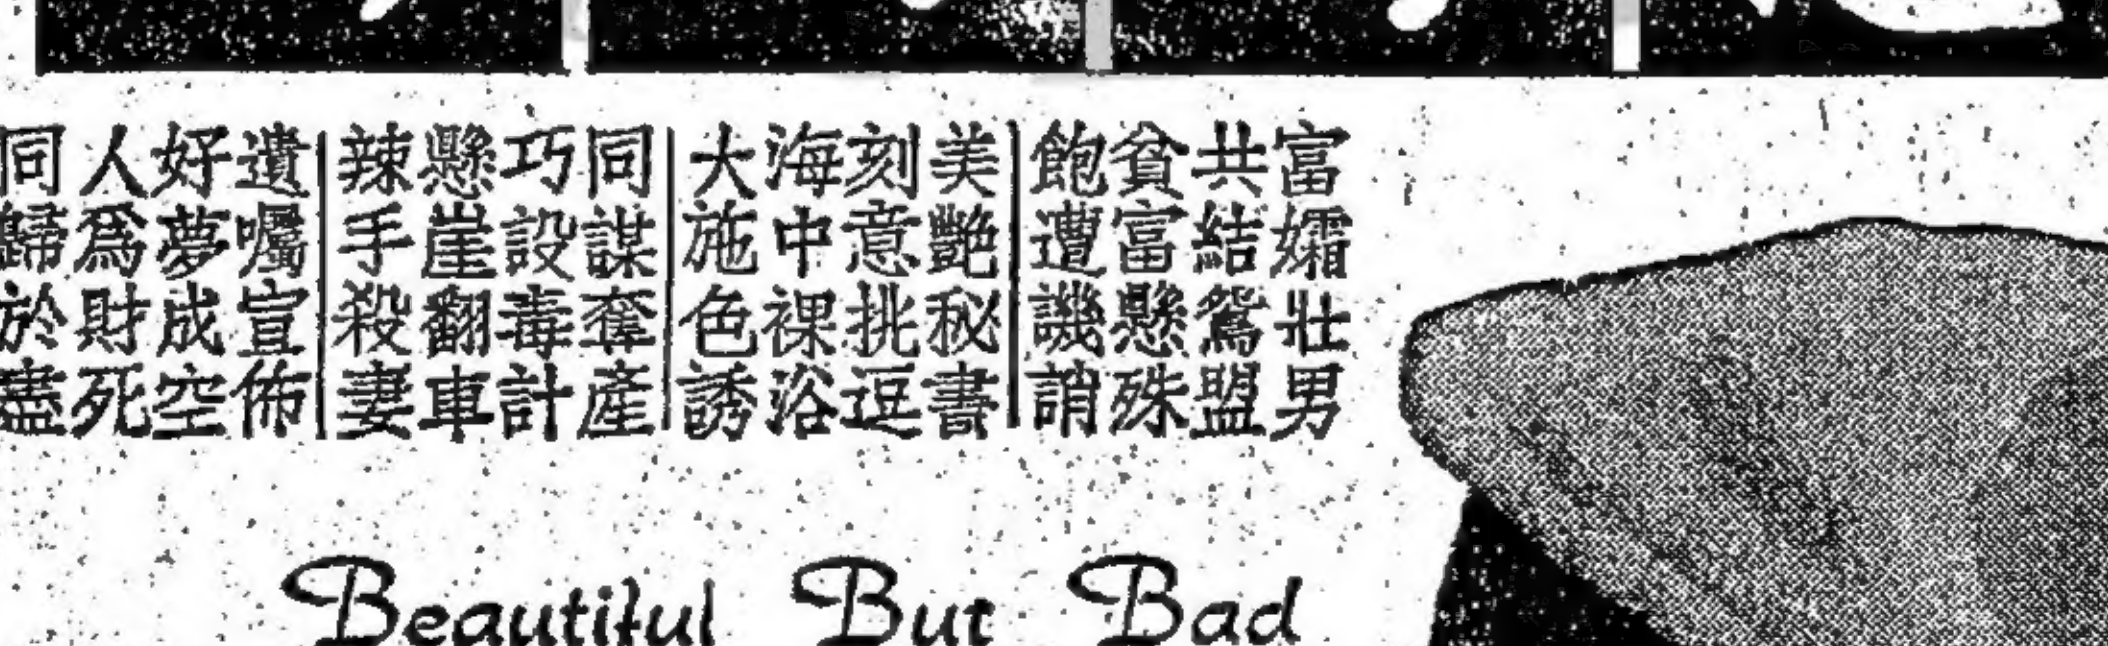 富孀壯男
共結鴛盟
貧富懸殊
飽遭譏誚
美艷秘書
刻意挑逗
海中裸浴
大施色誘
同謀奪產
巧設毒計
懸崖翻車
辣手殺妻
遺囑宣佈
好夢成空
人為財死
同歸於盡
Beautiful But Bad